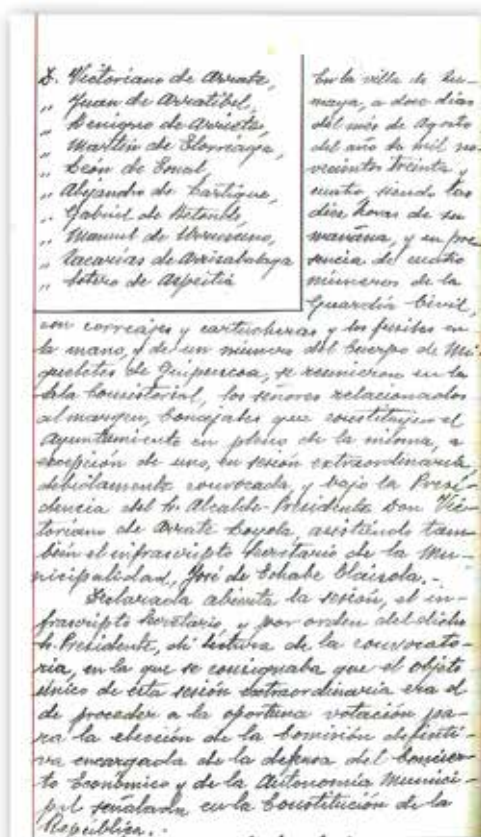 D. Victoriano de Arrate,
„ Juan de Arratibel,
„ Benigno de Arriola,
„ Martín de Elorriaga,
„ León de
„ Alejandro de
„ Gabriel de
„ Manuel de
„ Zacarias de Arrizabalaga
„ Sotero de Aspeitia
En la villa de Zu-
maya, a doce días
del mes de Agosto
del año de mil no-
vecientos treinta y
cuatro siendo las
diez horas de su
mañana, y en pre
sencia de cuatro
números de la
Guardia Civil,
con correajes y cartucheras y los fusiles en
la mano, y de un número del Cuerpo de Mi
queletes de Guipúzcoa, se reunieron en la
Sala Consistorial, los señores relacionados
al margen, Concejales que constituyen el
Ayuntamiento en pleno de la misma, a
excepción de uno, en sesión extraordinaria,
debidamente convocada, y bajo la Presi-
dencia del Sr. Alcalde-Presidente Don Vic-
toriano de Arrate Loyola, asistiendo tam-
bién el infrascripto Secretario de la Mu-
nicipalidad, José de Echabe
Declarada abierta la sesión, el in-
frascripto Secretario, y por orden del dicho
Sr. Presidente, dí lectura de la convocato-
ria, en la que se consignaba que el objeto
único de esta sesión extraordinaria era el
de proceder a la oportuna votación pa-
ra la elección de la Comisión definiti-
va encargada de la defensa del Concier-
to Económico y de la Autonomía Munici-
pal señalada en la Constitución de la
República.-